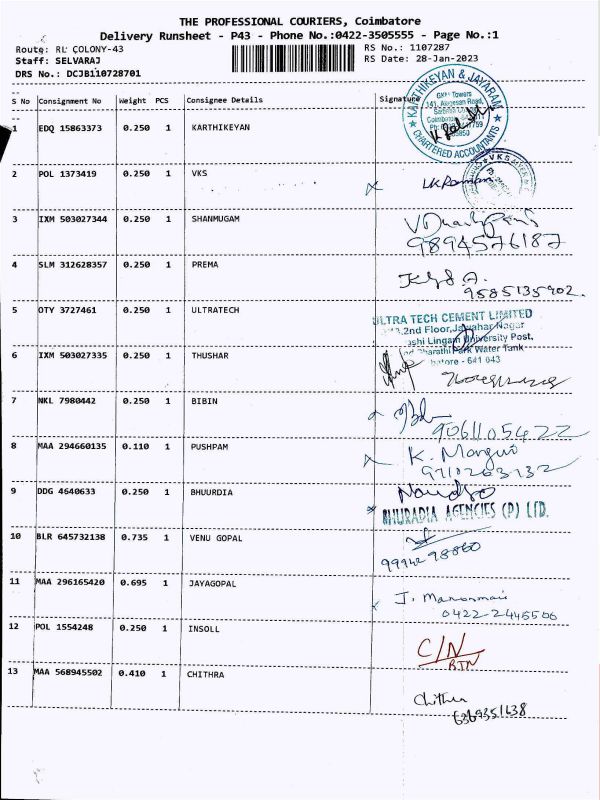 THE PROFESSIONAL COURIERS, Coimbatore
Delivery Runsheet - P43 - Phone No.:0422-3505555 - Page No.:1
Route: RL COLONY-43 RS No.: 1107287
Staff: SELVARAJ RS Date: 28-Jan-2023
DRS No.: DCJB110728701
S No Consignment No Weight PCS Consignee Details Signature
KARTHIKEYAN & JAYARAM
CHARTERED ACCOUNTANTS
1 EDQ 15863373 0.250 1 KARTHIKEYAN
2 POL 1373419 0.250 1 VKS
3 IXM 503027344 0.250 1 SHANMUGAM
9894576187
4 SLM 312628357 0.250 1 PREMA
9585135902.
5 OTY 3727461 0.250 1 ULTRATECH
ULTRA TECH CEMENT LIMITED
2nd Floor, Jawahar Nagar
University Post,
Bharathi Park Water Tank
641 043
6 IXM 503027335 0.250 1 THUSHAR
7 NKL 7980442 0.250 1 BIBIN
9061105422
8 MAA 294660135 0.110 1 PUSHPAM
K.
9710263732
9 DDG 4640633 0.250 1 BHUURDIA
BHURADIA AGENCIES (P) LTD.
10 BLR 645732138 0.735 1 VENU GOPAL
99942 98860
11 MAA 296165420 0.695 1 JAYAGOPAL
J.
0422-2445506
12 POL 1554248 0.250 1 INSOLL
C/N
RTN
13 MAA 568945502 0.410 1 CHITHRA
Chithra
6369351638